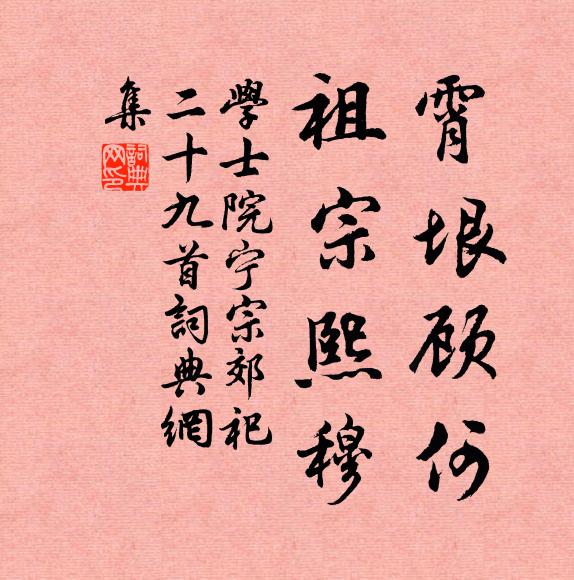 霄垠顾何
祖宗熙穆
學士院宁宗郊祀
二十九首詞典網
集
詞典网印